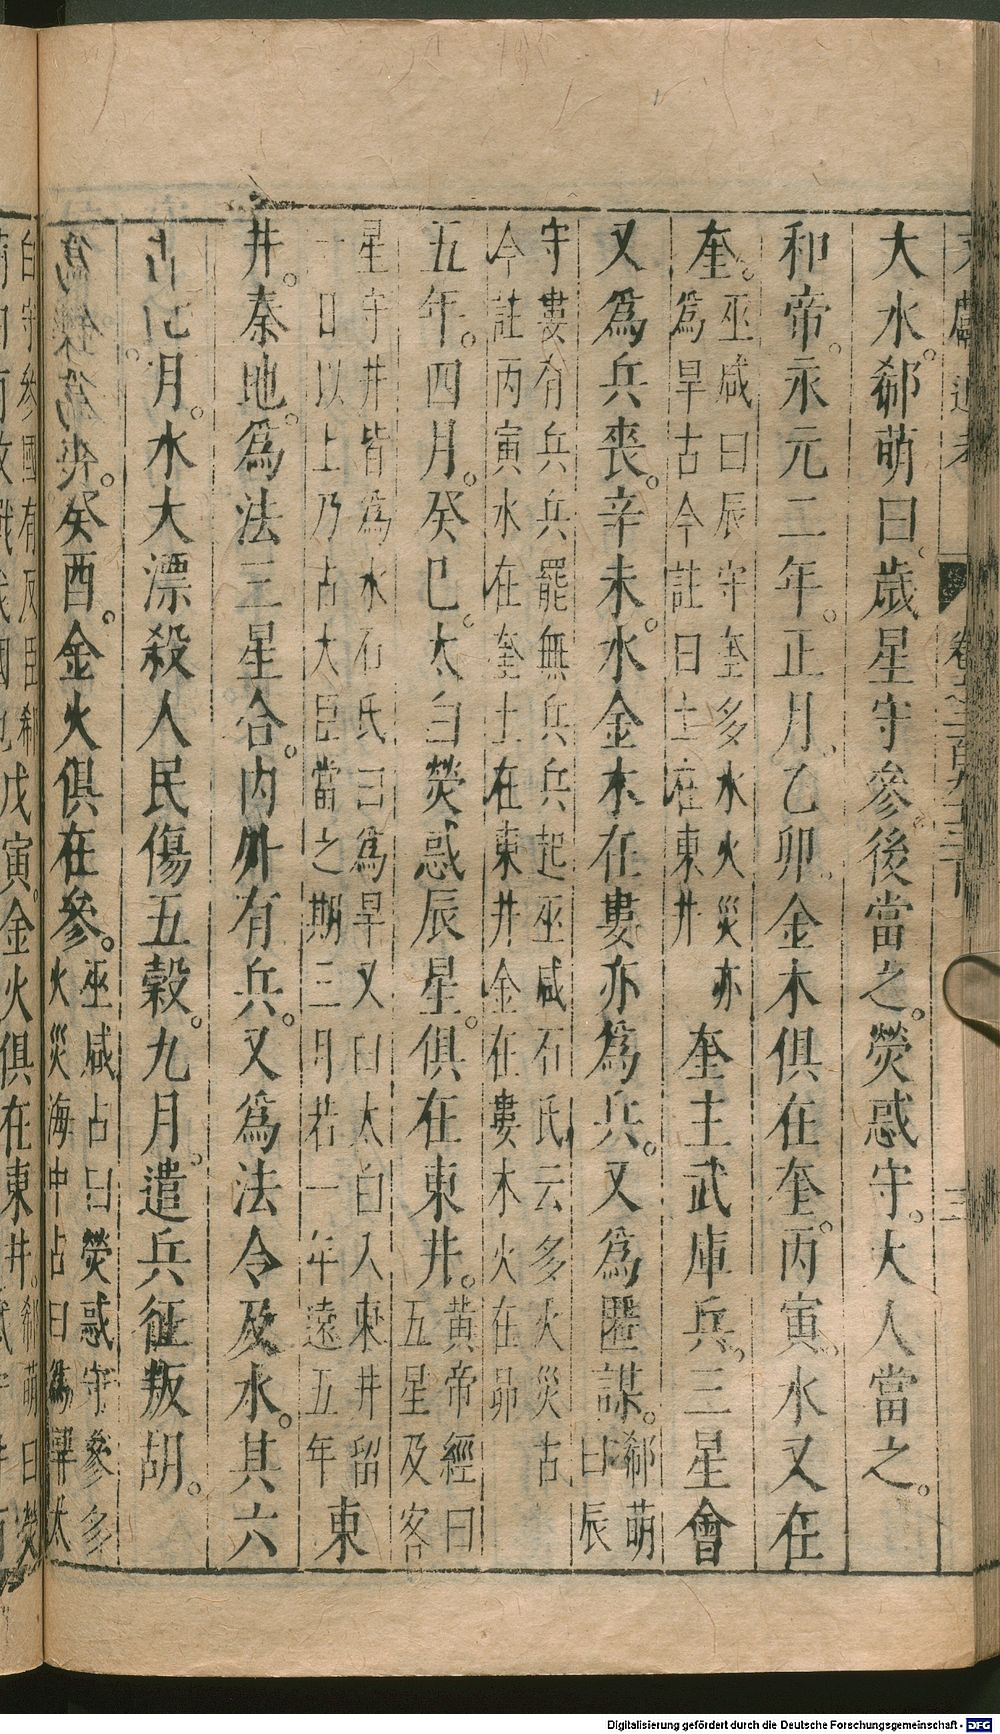 文獻通考
大水。郗萌曰。歲星守參。後當之。熒惑守。大人當之。
和帝。永元二年。正月。乙卯。金木俱在奎。丙寅。水又在
奎。巫咸曰辰守奎多水火災亦
為旱古今註曰土在東井
奎主武庫兵。三星會
又為兵喪。辛未。水金木在婁。亦為兵。又為匿謀。郗萌
曰辰
守婁有兵兵罷無兵兵起巫咸石氏云多火災古
今註丙寅水在奎土在東井金在婁木火在昴
五年。四月。癸巳。太白熒惑辰星。俱在東井。黃帝經曰
五星及客
星守井皆為水石氏曰為旱又曰太白入東井留
一日以上乃占大臣當之期三月若一年遠五年
東
井。秦地。為法。三星合。內外有兵。又為法令及水。其六
占曰。月。水大漂殺人民。傷五穀。九月。遣兵征叛胡。
為鑠為喪。癸酉。金火俱在參。巫咸占曰熒惑守參多
火災海中占曰為旱太
白守參國有反臣郗
戊寅。金火俱在東井。郗萌曰熒
Digitalisierung gefördert durch die Deutsche Forschungsgemeinschaft - DFG